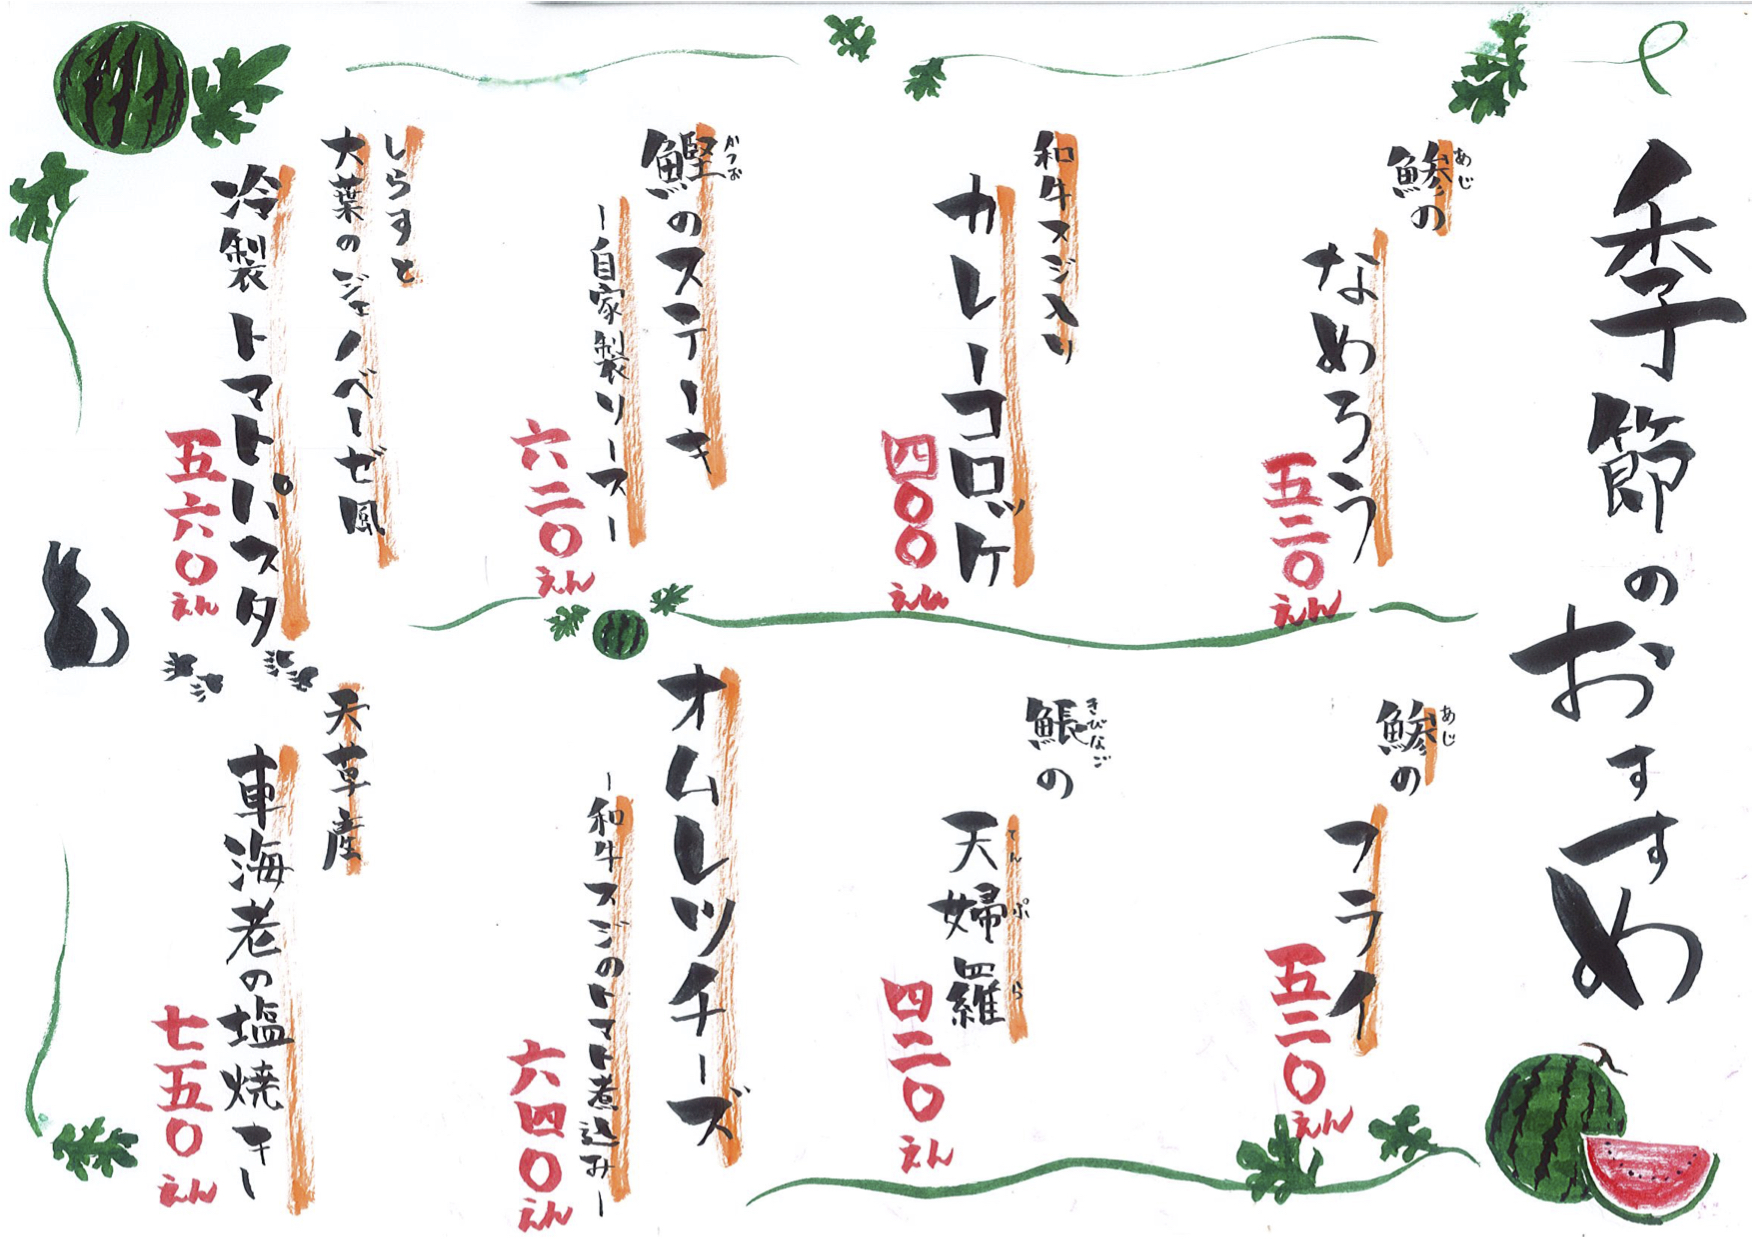 季節のおすすめ
鰺の
あじ
なめろう
五二〇えん
和牛スジ入り
カレーコロッケ
四〇〇えん
鰹のステーキ
かつお
ー自家製ソースー
六二〇えん
しらすと
大葉のジェノベーゼ風
冷製トマトパスタ
五六〇えん
鰺の
あじ
フライ
五二〇えん
きびなご
の
天婦羅
てんぷら
四二〇えん
オムレツチーズ
ー和牛スジのトマト煮込みー
六四〇えん
天草産
車海老の塩焼きー
七五〇えん